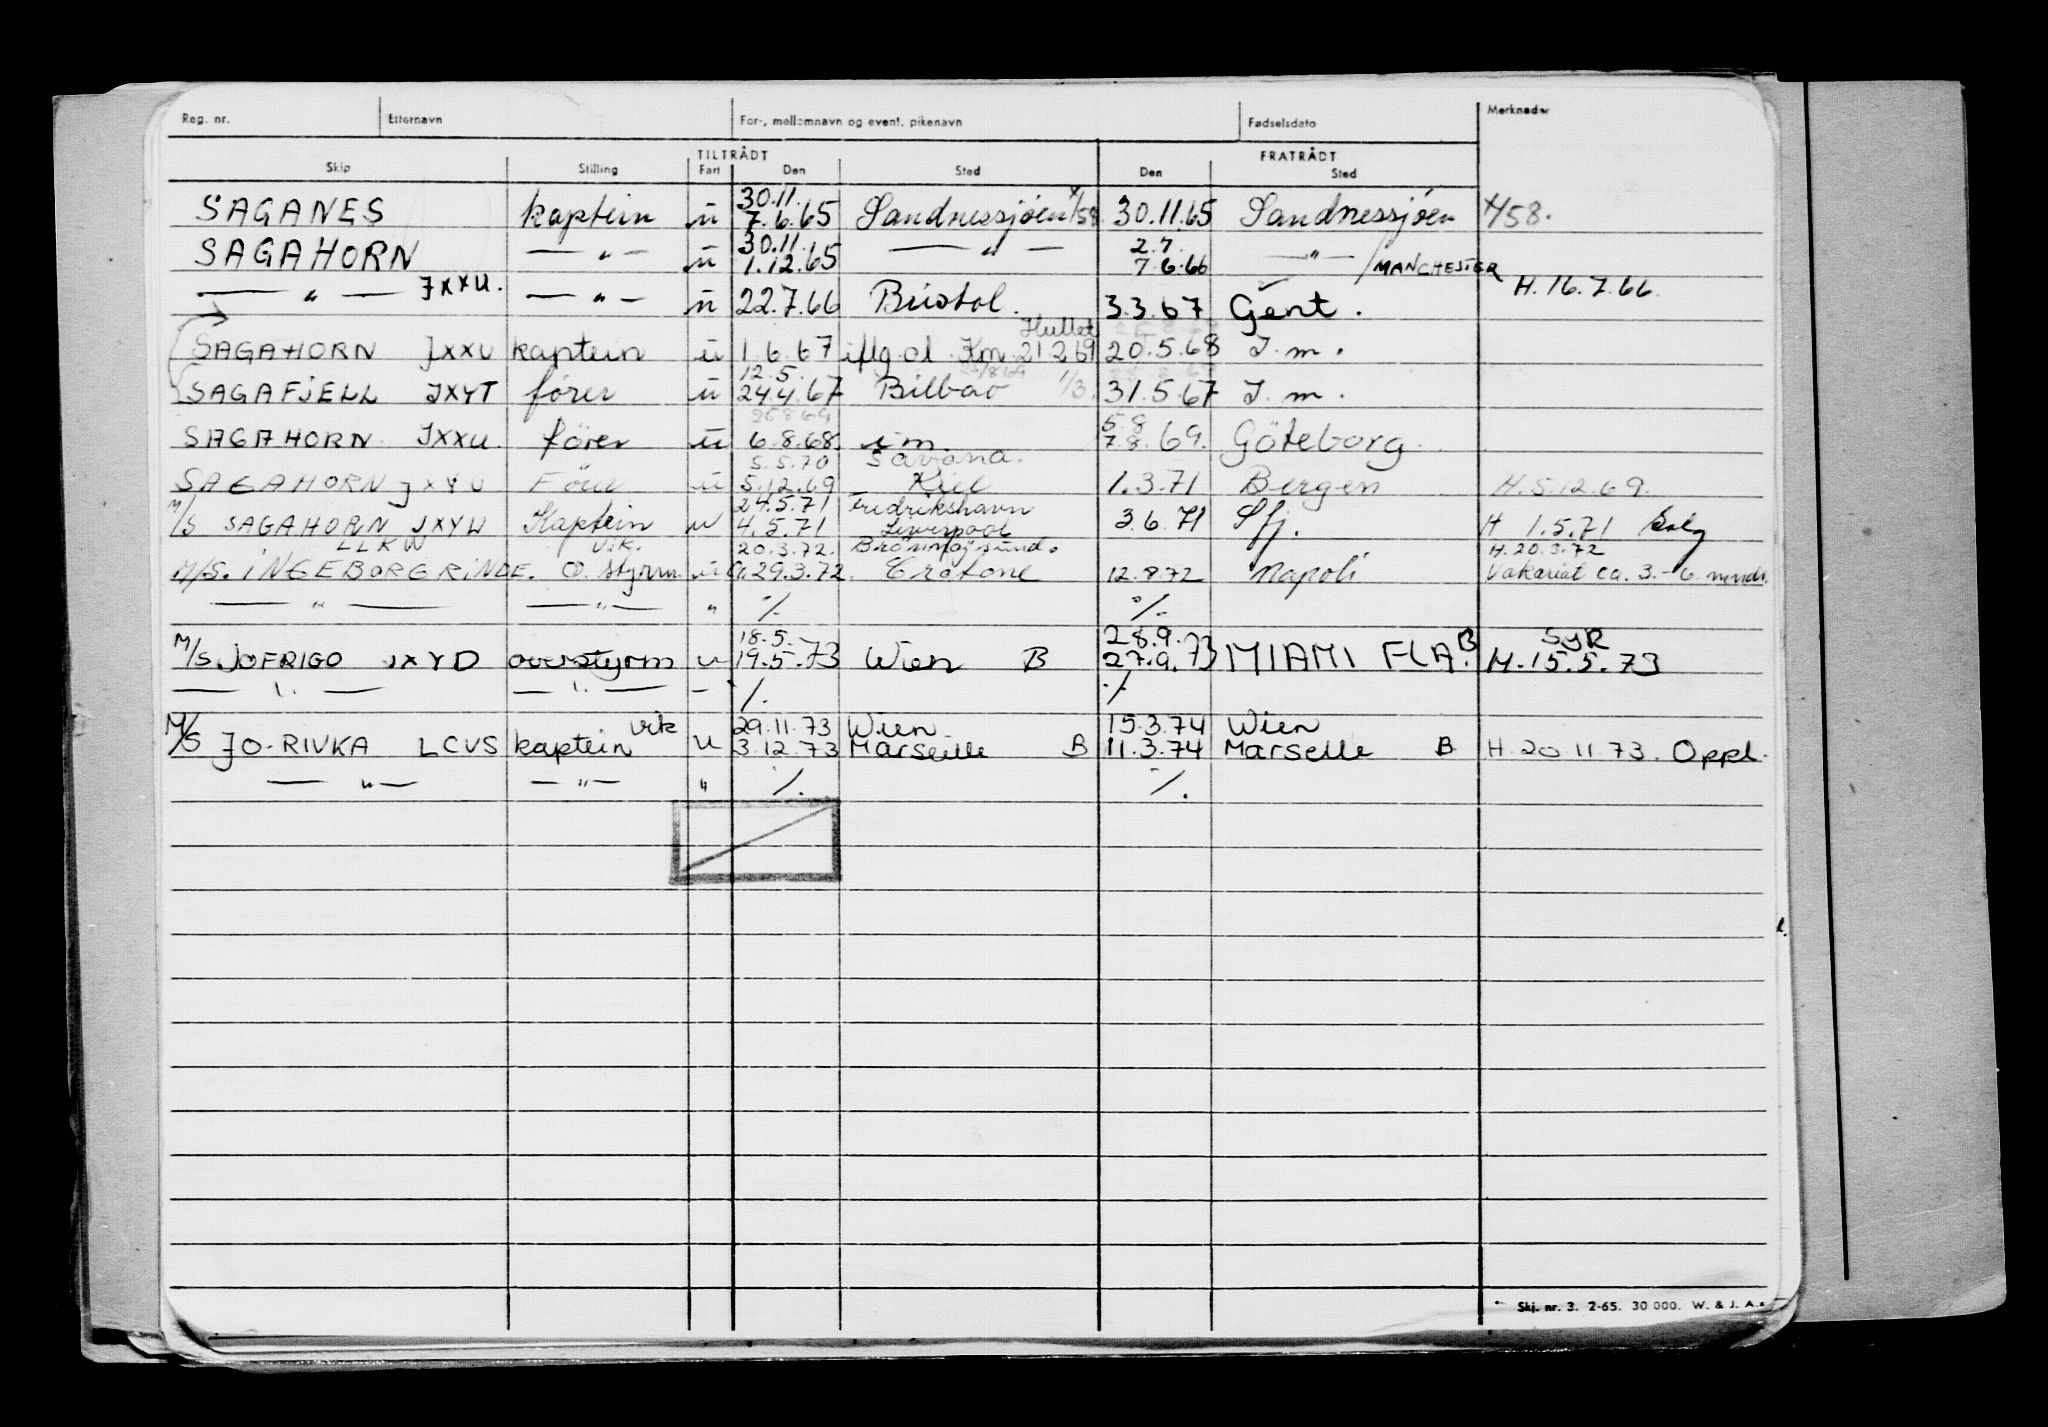 Reg. nr. Etternavn For-, mellomnavn og event. pikenavn Fødselsdato Merknader
TILTRÅDT FRATRÅDT
Skip Stilling Fart Den Sted Den Sted
30.11.
SAGANES kaptein u 7.6.65 Sandnessjøen 30.11.65 Sandnessjøen 4/58.
30.11. 2.7.
SAGAHORN — " — u 1.12.65 — " — 7.6.66 — " — / MANCHESTER
— " — JXXU. — " — u 22.7.66 Bristol. 3.3.67 Gent. H. 16.7.66.
Hullet
SAGAHORN JXXU kaptein u 1.6.67 iflg. ol. Km 21 2 69 20.5.68 I. m.
12.5.
SAGAFJELL JXYT fører u 24.4.67 Bilbao 1/3. 31.5.67 I. m.
25 8 64 5.8
SAGAHORN. JXXU. fører u 6.8.68 i m 7.8.69. Göteborg.
5.5.70 Savona.
SAGAHORN JXYU Fører u 5.12.69 Kiel 1.3.71 Bergen H. 5.12.69.
24.5.71 Fredrikshavn
M/S SAGAHORN JXYW Kaptein u 4.5.71 Liverpool 3.6.71 Sfj. H 1.5.71
LLKW Vik. 20.3.72. Brönnöysund. H. 20.3.72
M/S. INGEBORG RINDE. O. styrm. u 29.3.72. Crotone 12.8.72 Napoli Vakariat ca. 3.-6. mndr.
— " — — " — " ·/. ·/.
18.5. 28.9. SyR
M/S JOFRIGO JXYD overstyrm u 19.5.73 Wien B 27.9.73 MIAMI FLA. B H. 15.5.73
— " — — " — - ·/. ·/.
Vik 29.11.73 Wien 15.3.74 Wien
M/S JO-RIVKA LCVS kaptein u 3.12.73 Marseille B 11.3.74 Marselle B H. 20 11 73. Oppl.
— " — — " — " ·/. ·/.
Skj. nr. 3. 2-65. 30 000. W. & J. A.s